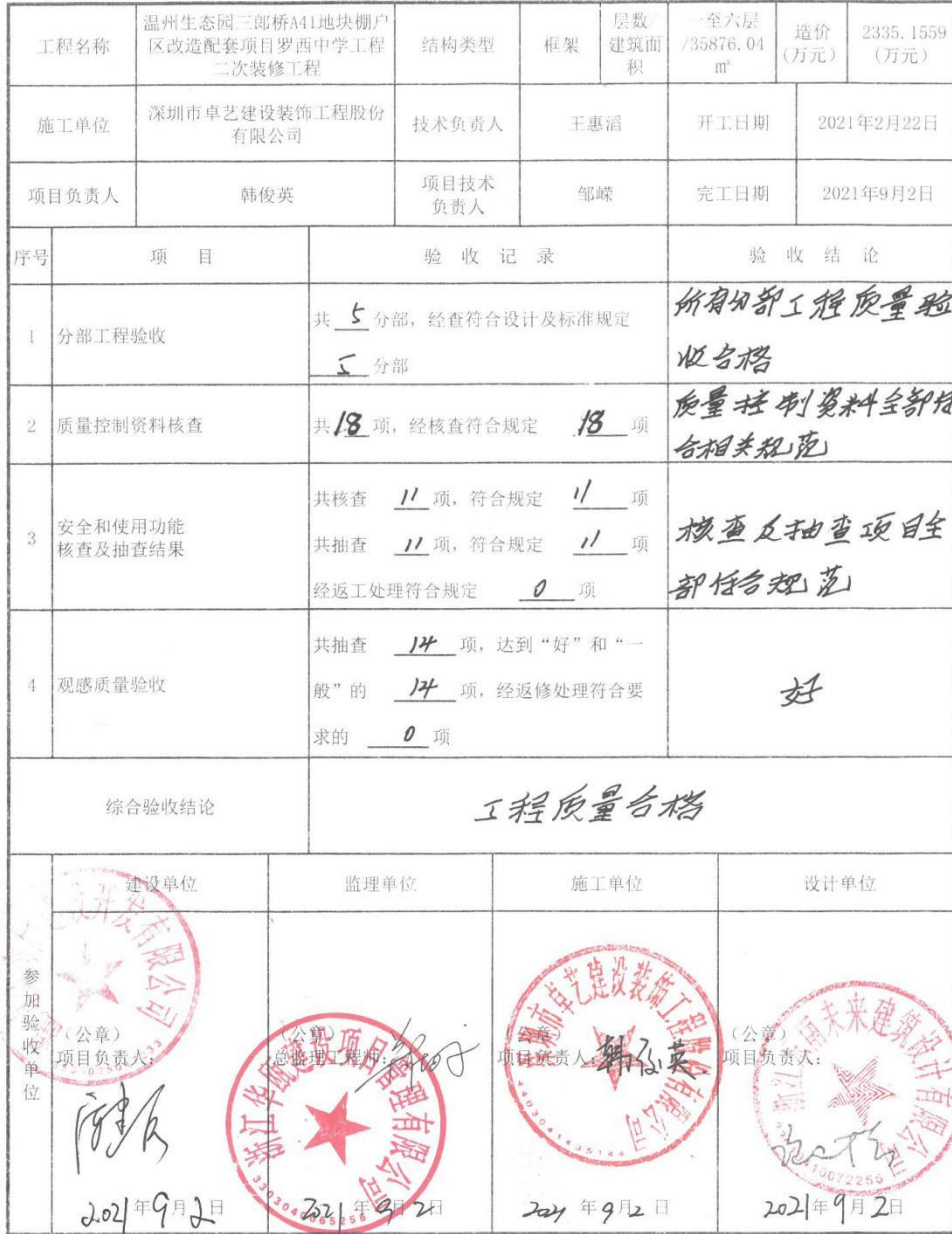 工程名称
温州生态园三郎桥A41地块棚户
区改造配套项目罗西中学工程
二次装修工程
结构类型
框架
层数/
建筑面
积
一至六层
/35876.04
m²
造价
(万元)
2335.1559
(万元)
施工单位
深圳市卓艺建设装饰工程股份
有限公司
技术负责人
王惠滔
开工日期
2021年2月22日
项目负责人
韩俊英
项目技术
负责人
邹嵘
完工日期
2021年9月2日
序号
项 目
验 收 记 录
验 收 结 论
1
分部工程验收
共 5 分部，经查符合设计及标准规定
5 分部
所有分部工程质量验
收合格
2
质量控制资料核查
共 18 项，经核查符合规定 18 项
质量控制资料全部符
合相关规范
3
安全和使用功能
核查及抽查结果
共核查 11 项，符合规定 11 项
共抽查 11 项，符合规定 11 项
经返工处理符合规定 0 项
核查及抽查项目全
部符合规范
4
观感质量验收
共抽查 14 项，达到“好”和“一
般”的 14 项，经返修处理符合要
求的 0 项
好
综合验收结论
工程质量合格
参加验收单位
建设单位
监理单位
施工单位
设计单位
（公章）
项目负责人：
2021年9月2日
开发有限公司
（公章）
总监理工程师：
2021年9月2日
浙江华厦建设项目管理有限公司
（公章）
项目负责人：韩俊英
2021年9月2日
深圳市卓艺建设装饰工程股份有限公司
4403041435144
（公章）
项目负责人：
2021年9月2日
未来建筑设计有限公司